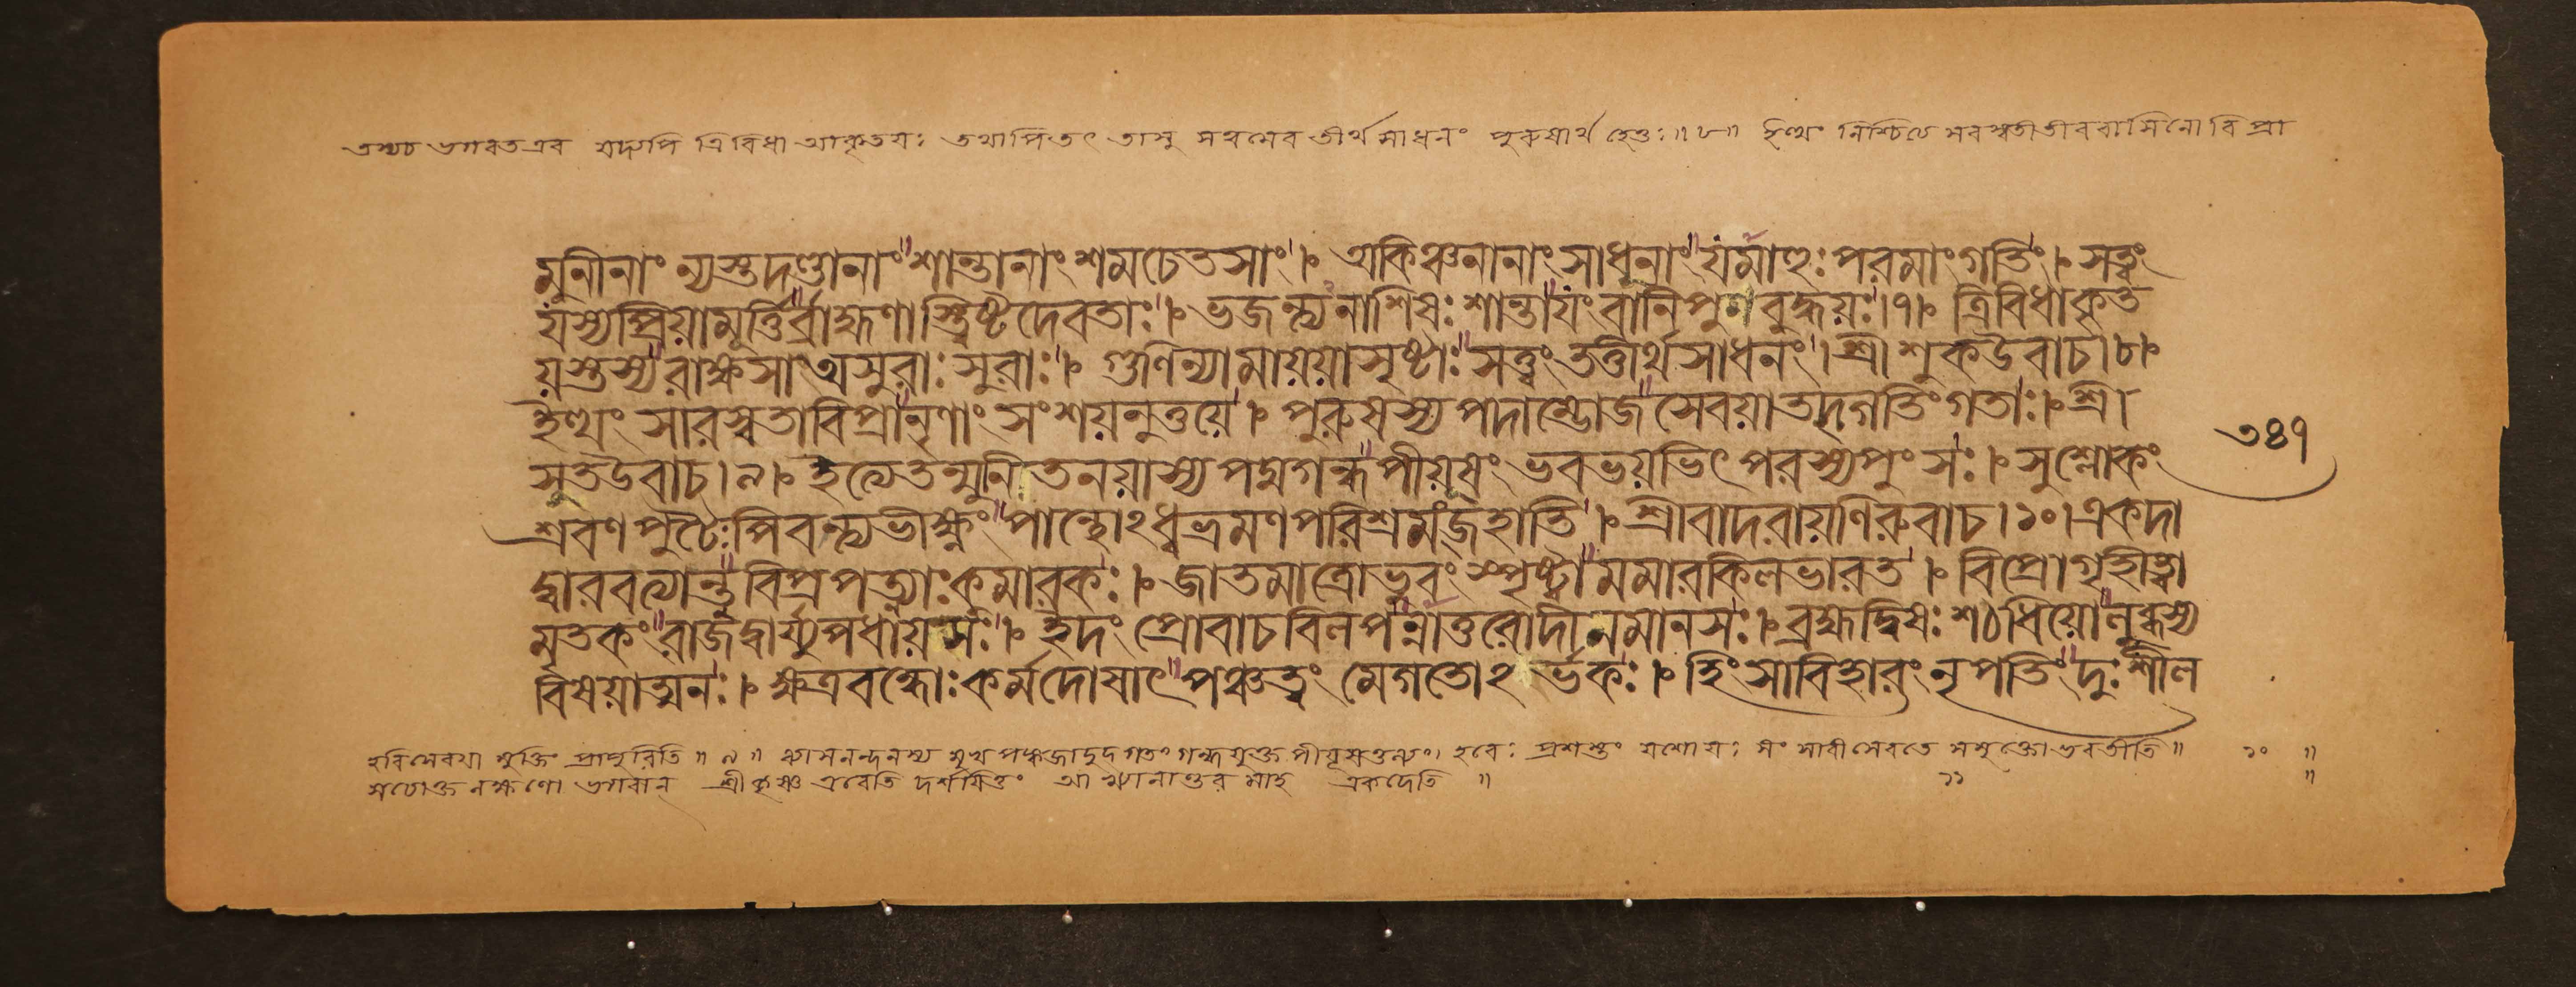 তস্যচ ভগবতএব যদ্যপি ত্রিবিধা আকৃতয়ঃ তথাপিতৎ তাসু সত্ত্বমেব তীর্থসাধনং পুরুষার্থ হেতুঃ॥৮॥ ইত্থং নিশ্চিত্য সরস্বতীতীরবাসিনো বিপ্রা
মুনীনাং ন্যস্তদণ্ডানাং শান্তানাং শমচেতসাং।৬ অকিঞ্চনানাং সাধূনাং যমাহুঃ পরমাংগতিং।৬ সত্ত্বং
যস্যপ্রিয়ামূর্ত্তির্ব্রাহ্মণাস্ত্বিষ্টদেবতাঃ।৬ ভজন্ত্যনাশিষঃ শান্তাযংবানিপুণবুদ্ধয়ঃ।৭।৬ ত্রিবিধাকৃত
য়স্তস্যরাক্ষসাঅসুরাঃসুরাঃ।৬ গুণিন্যামায়য়াসৃষ্টাঃ সত্ত্বংতত্তীর্থসাধনং।শ্রীশুকউবাচ।৮।৬
ইত্থং সারস্বতাবিপ্রানৃণাং সংশয়নুত্তয়ে।৬ পুরুষস্যপদাম্ভোজসেবয়াতদ্গতিংগতাঃ।৬ শ্রী
৩৪৭
সূতউবাচ।৯।৬ ইত্যেতন্মুনিতনয়াস্যপদ্মগন্ধপীয়ূষং ভবভয়ভিৎপরস্যপুংসঃ।৬ সুশ্লোকং
শ্রবণপুটৈঃপিবন্ত্যভীক্ষ্ণং পান্থোঽধ্বভ্রমণপরিশ্রমংজহাতি।৬ শ্রীবাদরায়ণিরুবাচ।১০।একদা
দ্বারবত্যান্তু বিপ্রপত্ন্যাঃকুমারকঃ।৬ জাতমাত্রোভুবংস্পৃষ্ট্বা মমারকিলভারত।৬ বিপ্রোগৃহীত্বা
মৃতকং রাজদ্বার্য্যুপধায়সঃ।৬ ইদং প্রোবাচবিলপন্নাতুরোদীনমানসঃ।৬ ব্রহ্মদ্বিষঃ শঠধিয়োলুব্ধস্য
বিষয়াত্মনঃ।৬ ক্ষত্রবন্ধোঃকর্মদোষাৎ পঞ্চত্বং মেগতোঽর্ভকঃ।৬ হিংসাবিহারং নৃপতিং দুঃশীল
হরিসেবয়া মুক্তিং প্রাপুরিতি॥৯॥ ব্যাসনন্দনস্য মুখপঙ্কজাদুদ্গতং গন্ধযুক্তপীযূষতুল্যং। হরেঃ প্রশস্তং যশো যঃ সংসারী সেবতে সমুক্তোভবতীতি॥ ১০॥
যথোক্তলক্ষণো ভগবান্ শ্রীকৃষ্ণ এবেতি দর্শয়িতুং আখ্যানান্তরমাহ একদেতি॥ ১১॥